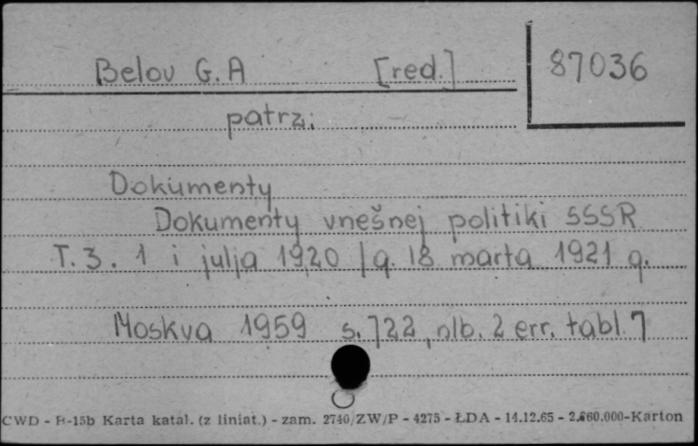 Belov G. A [red.] 87036
patrz:
Dokumenty
Dokumenty vnešnej politiki SSSR
T. 3. 1 i julja 1920 g. 18 marta 1921 g.
Moskva 1959 s. 722, nlb. 2 err. tabl. 7
CWD - B-15b Karta katal. (z liniat.) - zam. 2740/ZW/P - 4275 - ŁDA - 14.12.65 - 2.660.000-Karton